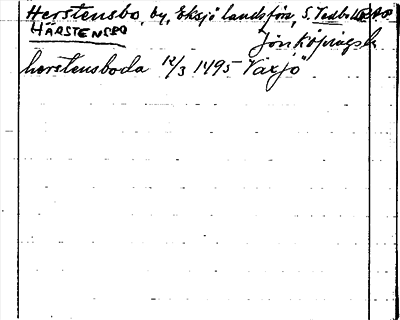 Herstensbo, by, Eksjö landsförs, S.
HÄRSTENSBO
Jönköpings
herstensboda 12/3 1495 Växjö